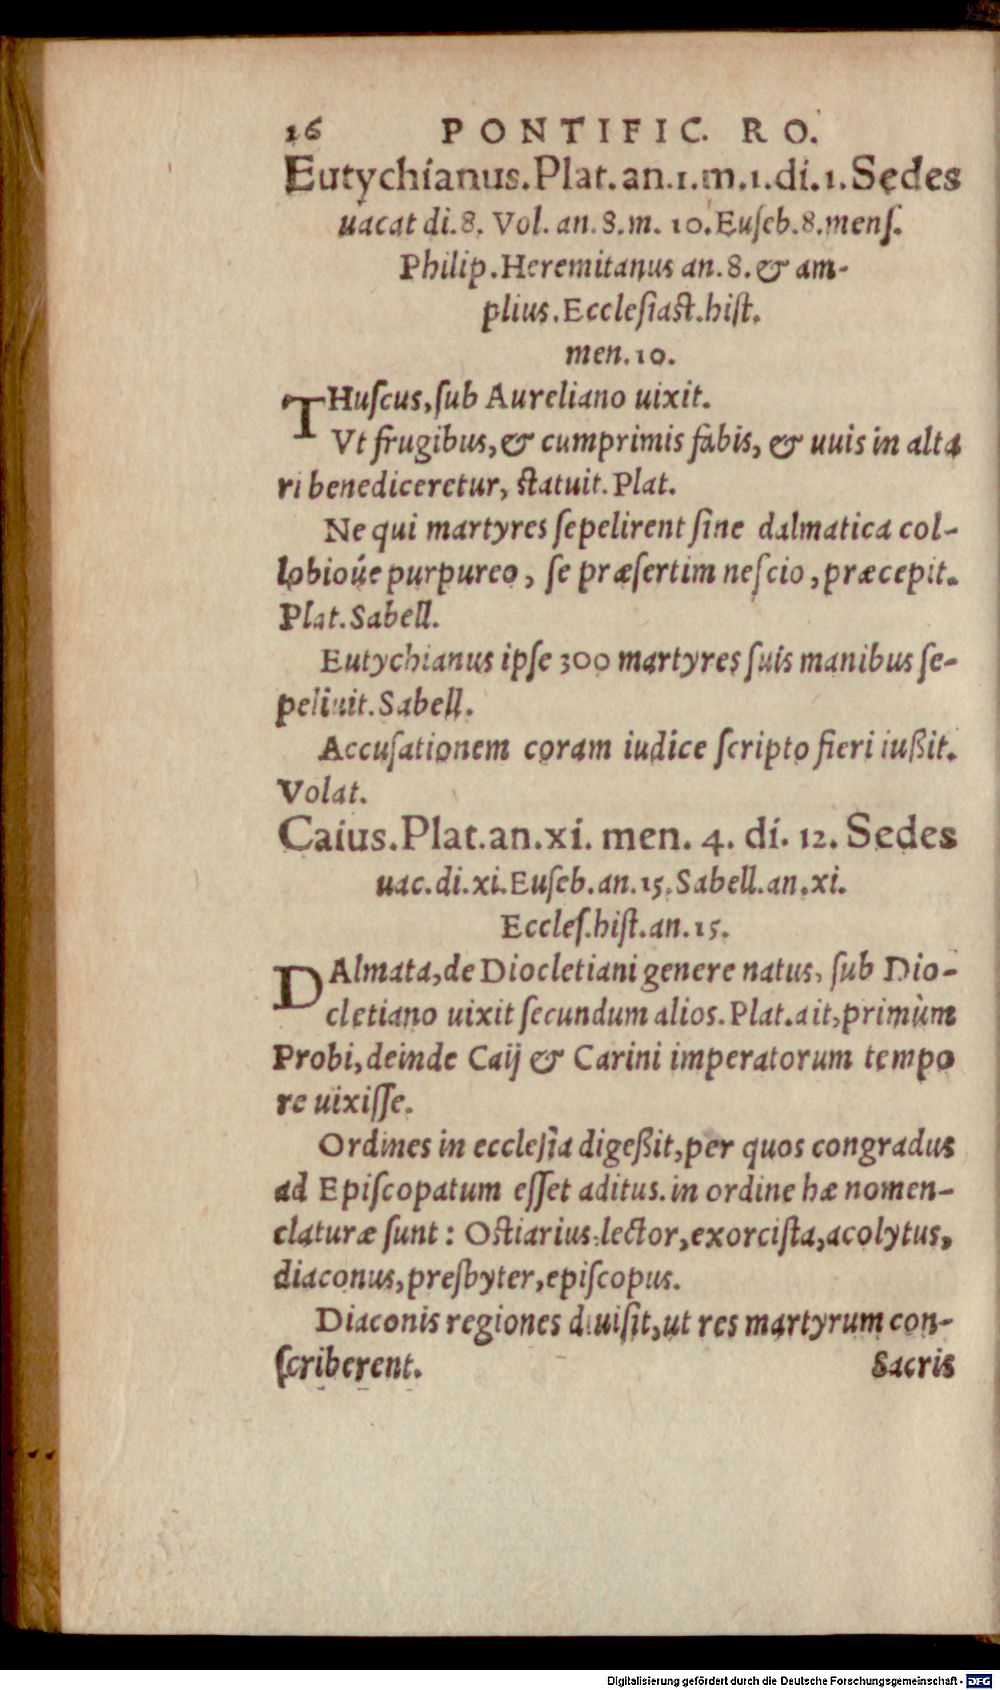 16 PONTIFIC. RO.
Eutychianus.Plat.an.1.m.1.di.1.Sedes
uacat di.8. Vol. an. 8.m. 10.Euſeb.8.menſ.
Philip.Heremitanus an.8.& am-
plius.Eccleſiaſt.hiſt.
men.10.
THuſcus,ſub Aureliano uixit.
Vt frugibus,& cumprimis fabis, & uuis in alta
ri benediceretur, ſtatuit.Plat.
Ne qui martyres ſepelirent ſine dalmatica col-
lobioúe purpureo, ſe præſertim neſcio,præcepit.
Plat.Sabell.
Eutychianus ipſe 300 martyres ſuis manibus ſe-
peliuit.Sabell.
Accuſationem coram iudice ſcripto fieri iußit.
Volat.
Caius.Plat.an.xi. men. 4. di. 12. Sedes
uac.di.xi.Euſeb.an.15.Sabell.an.xi.
Eccleſ.hiſt.an.15.
DAlmata,de Diocletiani genere natus, ſub Dio-
cletiano uixit ſecundum alios.Plat.ait,primùm
Probi,deinde Caij & Carini imperatorum tempo
re uixiſſe.
Ordines in eccleſia digeßit,per quos congradus
ad Epiſcopatum eſſet aditus.in ordine hæ nomen-
claturæ ſunt: Oſtiarius,lector,exorciſta,acolytus,
diaconus,preſbyter,epiſcopus.
Diaconis regiones diuiſit,ut res martyrum con-
ſcriberent. Sacris
Digitalisierung gefördert durch die Deutsche Forschungsgemeinschaft - DFG